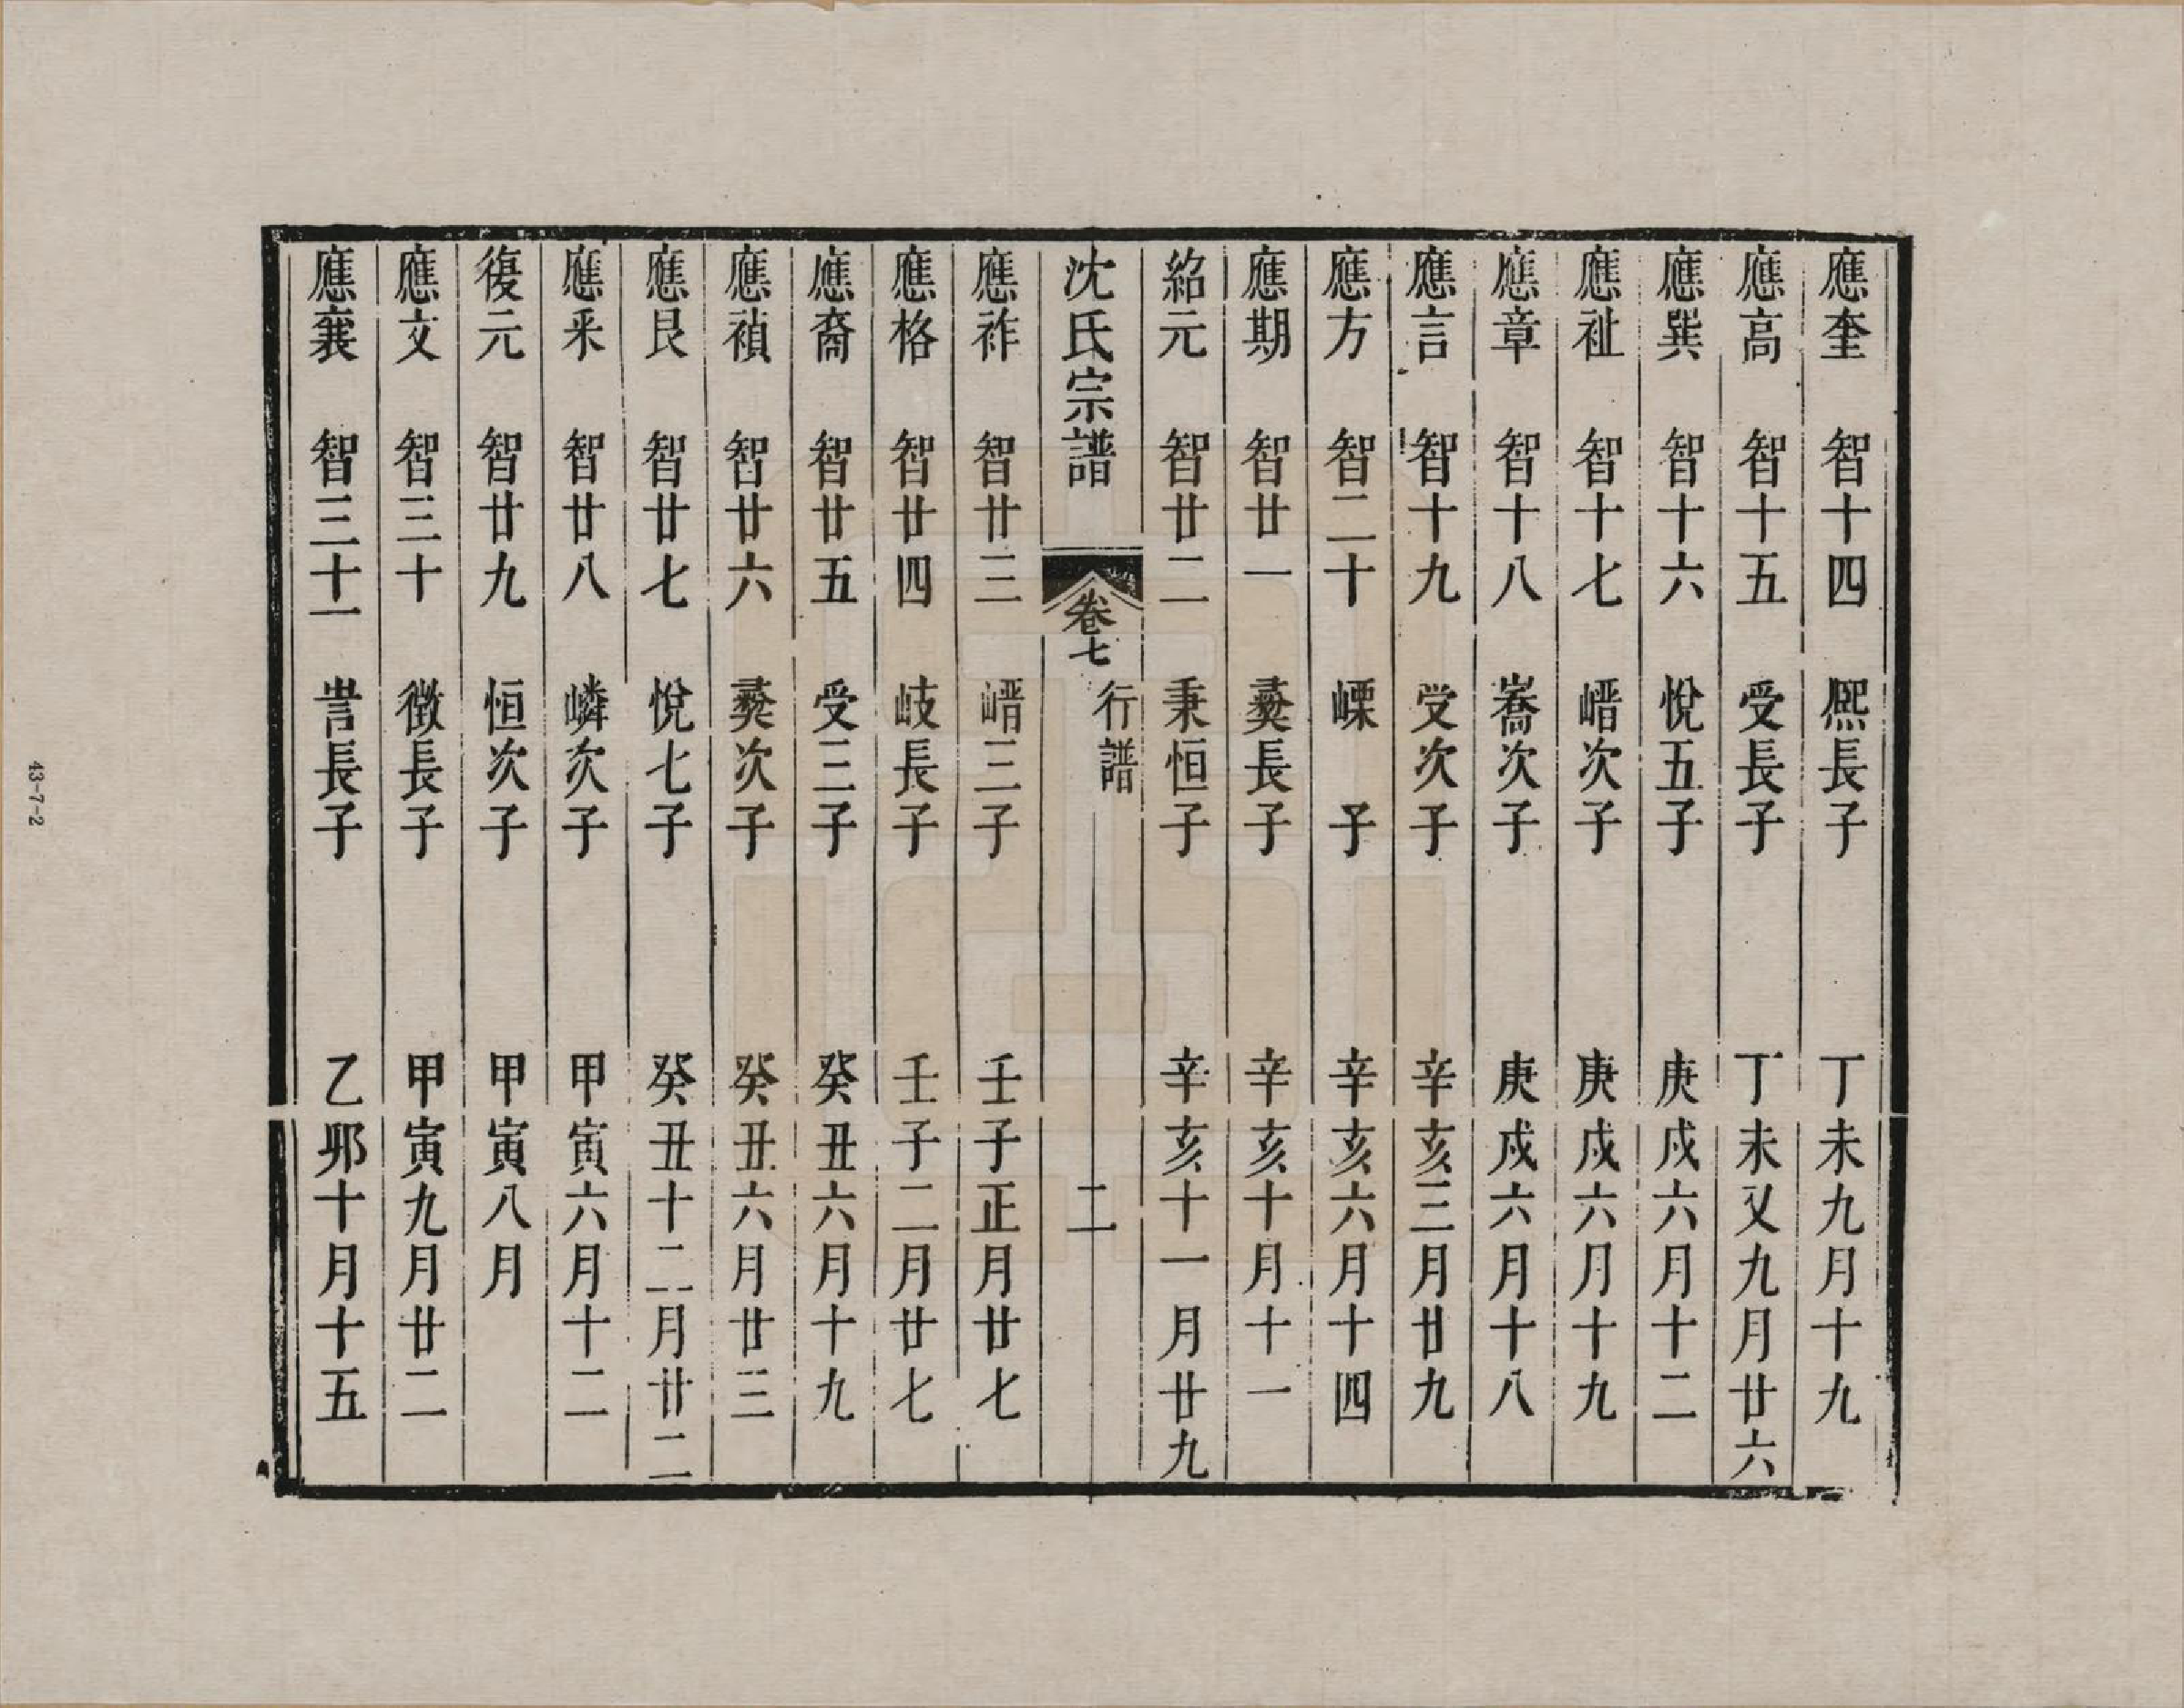 應奎 智十四 熈長子 丁未九月十九
應高 智十五 受長子 丁未又九月廿六
應巽 智十六 悅五子 庚戍六月十二
應祉 智十七 㟙次子 庚戍六月十九
應章 智十八 嵩次子 庚戍六月十八
應言 智十九 受次子 辛亥三月廿九
應方 智二十 㟳 子 辛亥六月十四
應期 智廿一 彛長子 辛亥十月十一
紹元 智廿二 秉恒子 辛亥十一月廿九
沈氏宗譜 卷七 行譜 二
應祚 智廿三 㟙三子 壬子正月廿七
應格 智廿四 岐長子 壬子二月廿七
應裔 智廿五 受三子 癸丑六月十九
應禎 智廿六 彛次子 癸丑六月廿三
應艮 智廿七 悅七子 癸丑十二月廿二
應釆 智廿八 嶙次子 甲寅六月十二
復元 智廿九 恒次子 甲寅八月
應文 智三十 徵長子 甲寅九月廿二
應襄 智三十一 長子 乙夘十月十五
43-7-2